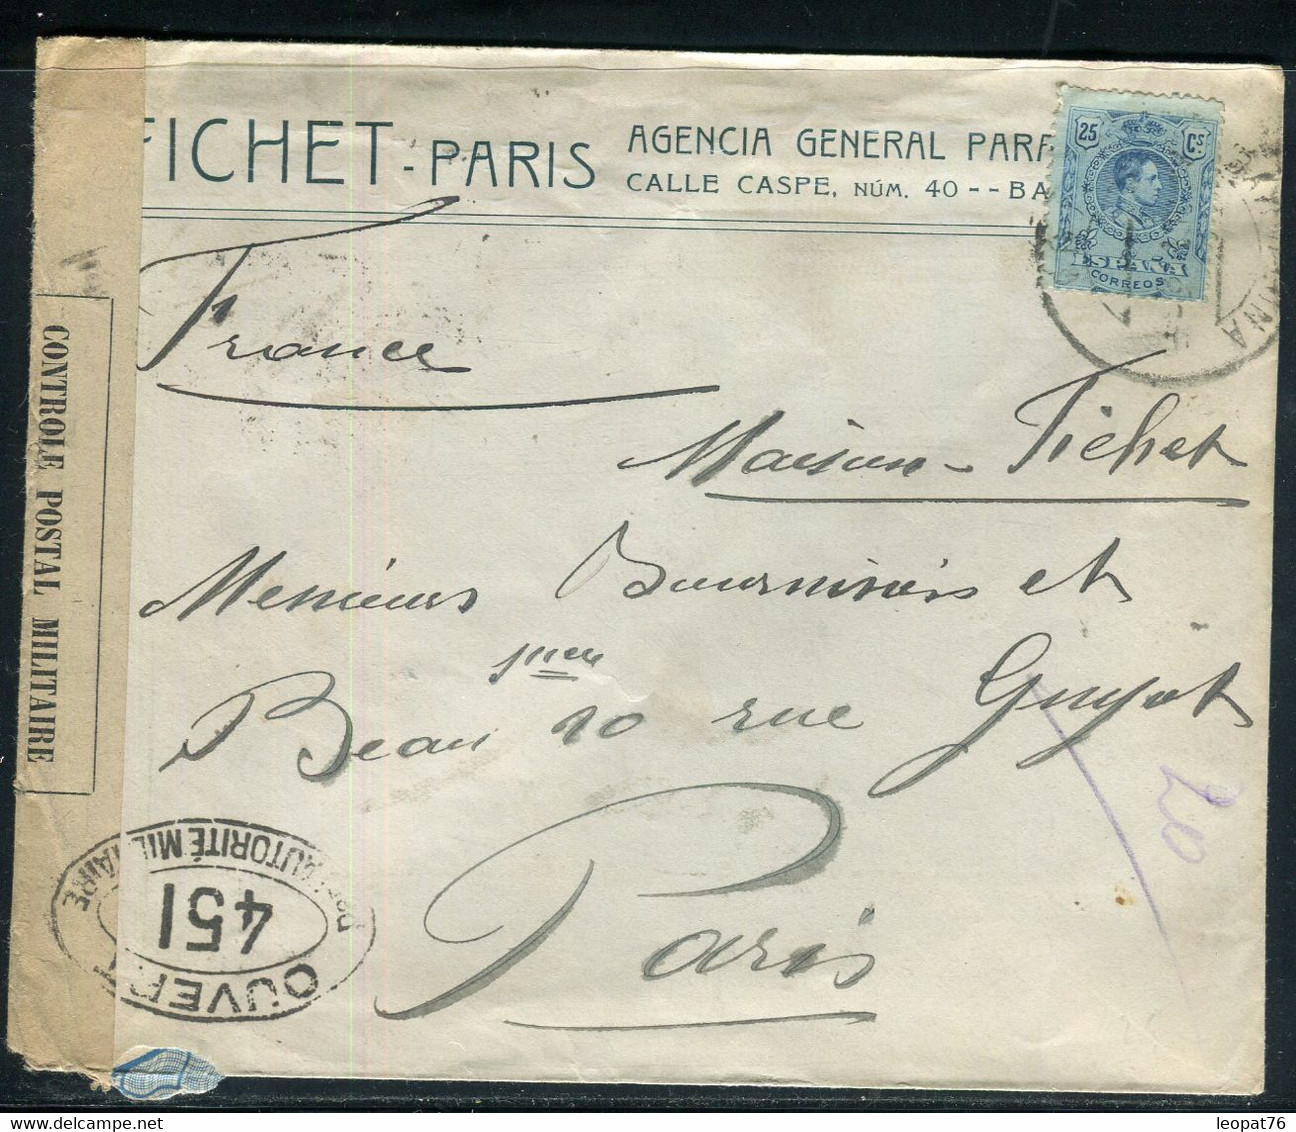 FICHET - PARIS
AGENCIA GENERAL PARA
CALLE CASPE, NÚM. 40 -- BA
25 Cs
ESPAÑA
CORREOS
France
Maison - Fichet
Messieurs et
Beau 20 rue Guyot
Paris
20
CONTROLE POSTAL MILITAIRE
OUVERT
PAR AUTORITÉ MILITAIRE
451
leopat76